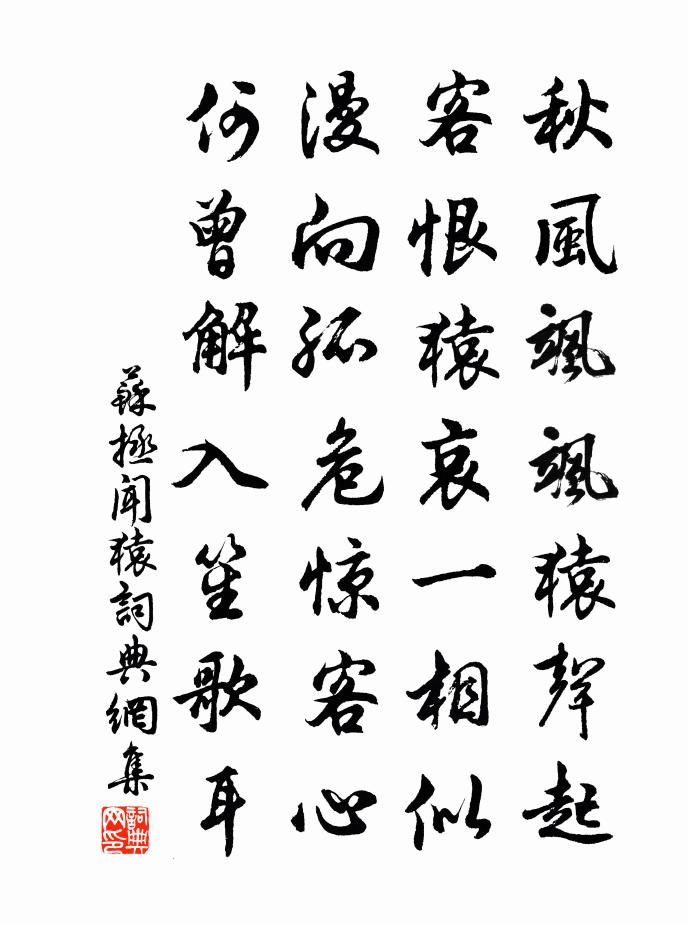 秋風颯颯猿聲起
客恨猿哀一相似
漫向孤危惊客心
何曾解入笙歌耳
蘇拯聞猿詞典網集
詞典
网印